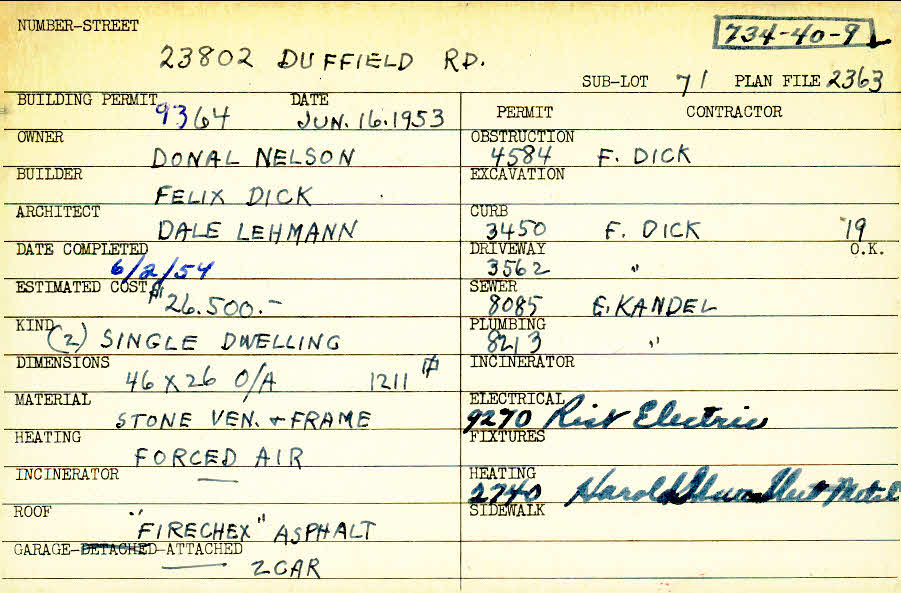 NUMBER-STREET
734-40-9
23802 DUFFIELD RD.
SUB-LOT 71 PLAN FILE 2363
BUILDING PERMIT 9364 DATE JUN. 16. 1953
OWNER DONAL NELSON
BUILDER FELIX DICK
ARCHITECT DALE LEHMANN
DATE COMPLETED 6/2/54
ESTIMATED COST $26.500.-
KIND (2) SINGLE DWELLING
DIMENSIONS 46 X 26 O/A 1211 #
MATERIAL STONE VEN. + FRAME
HEATING FORCED AIR
INCINERATOR —
ROOF "FIRECHEX" ASPHALT
GARAGE-DETACHED-ATTACHED 2 CAR
PERMIT CONTRACTOR
OBSTRUCTION 4584 F. DICK
EXCAVATION
CURB 3450 F. DICK 19
DRIVEWAY 3562 " O.K.
SEWER 8085 E. KANDEL
PLUMBING 8213 "
INCINERATOR
ELECTRICAL 9270 Rist Electric
FIXTURES
HEATING 2740 Harold Sheet Metal
SIDEWALK